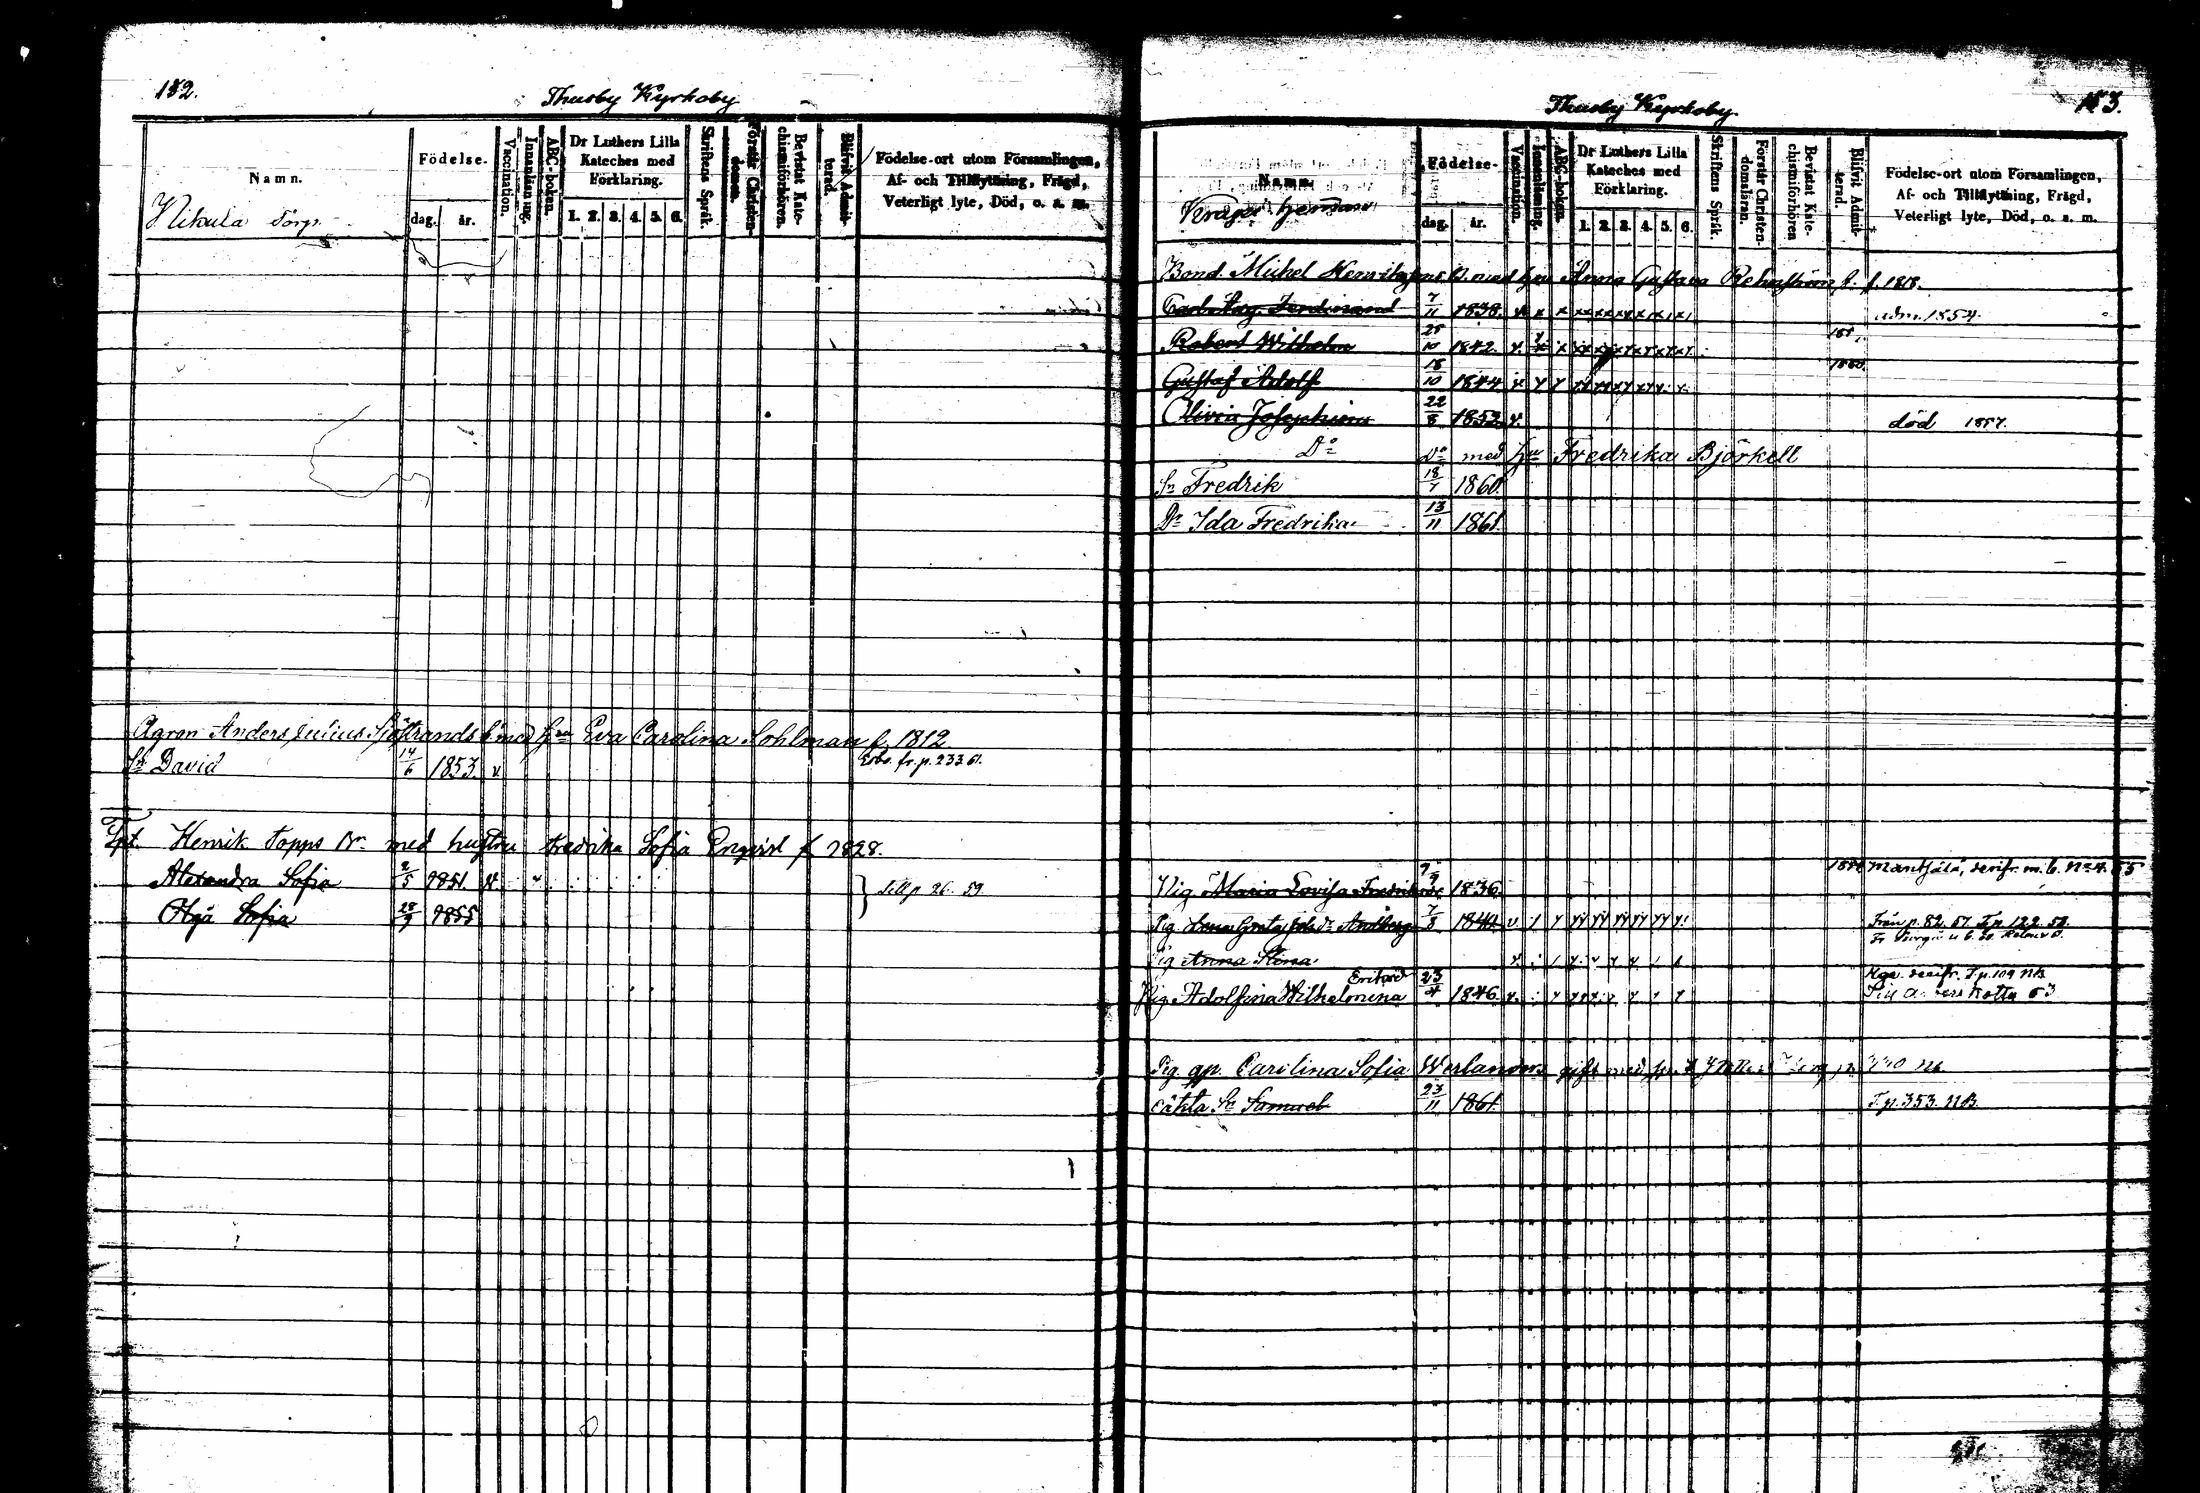 152.
Thusby Kyrkoby
Namn.
Födelse.
dag. år.
Vaccination.
Innanläsning.
ABC-boken.
Dr Luthers Lilla Kateches med Förklaring.
1. 2. 3. 4. 5. 6.
Skriftens Språk.
Förstår Christen-domen.
Bevistat Kate-chismiförhören.
Blifvit Admit-terad.
Födelse-ort utom Församlingen,
Af- och Tillflyttning, Frägd,
Veterligt lyte, Död, o. s. m.
Nikula Torp.
Agron Anders Julius Sjöstrands b. med hru Eva Carolina Sohlman f. 1812
Sn David 14/6 1853. v. fr. p. 233
Henrik Topps Bn med hustru Fredrika Sofia Enqvist f 1828.
Alexandra Sofia 2/5 1851. v
Till p 26. 59
Olga Sofia 28/9 1855
153.
Thusby Kyrkoby.
Namn.
Födelse-
dag. år.
Vaccination.
Innanläsning.
ABC-boken.
Dr Luthers Lilla Kateches med Förklaring.
1. 2. 3. 4. 5. 6.
Skriftens Språk.
Förstår Christen-domsläran.
Bevistat Kate-chismiförhören
Blifvit Admit-terad.
Födelse-ort utom Församlingen,
Af- och Tillflyttning, Frägd,
Veterligt lyte, Död, o. s. m.
Kräger hemman
Bond. Michel Henrikssons b. med hru Anna Gustava Rehnström, f. 1818.
Carl Aug. Ferdinand 7/11 1838. adm. 1854.
Robert Wilhelm 25/10 1842.
Gustaf Adolf 18/10 1844 1860.
Olivia Josephina 22/8 1852 v. död 1857.
Do Do med hru Fredrika Björkell
Sn Fredrik 18/7 1860.
Dr Ida Fredrika 13/11 1861.
Pig. Maria Lovisa Fredriksdr 9/9 1836. Mäntsälä, m. b. No 4. 55
Pig. Lena Greta 7/8 1840. Från p. 82. 57. T. p. 122. 58.
Pig Anna Stina
Pig. Adolfina Wilhelmina Eriksdr 23/4 1846. T. p. 109 NB
Pig. gp. Carolina Sofia Werlander gift med
oäkta Sn Samuel 23/11 1861. T. p. 353. NB.